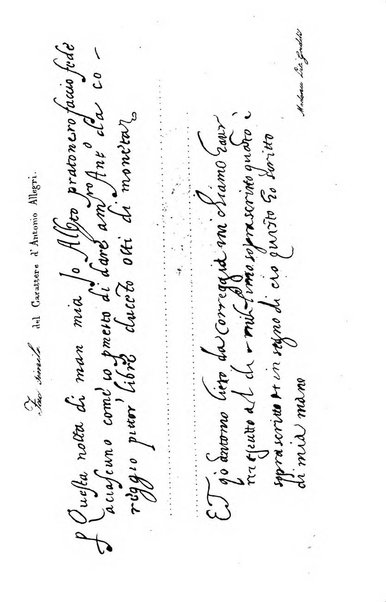 Fac simile del Carattere d'Antonio Allegri.
Questa notta di man mia Io Albto pratonero faccio fede
a ciascuno come io pmetto di dare a m.ro Ant.o da co-
reggio pictor libre ducento otto di moneta
Et Io Antonio lieto da Correggia mi chiamo haver
al dì e millesimo soprascritto quanto è
soprascritto et in segno di ciò questo ho scritto
di mia mano